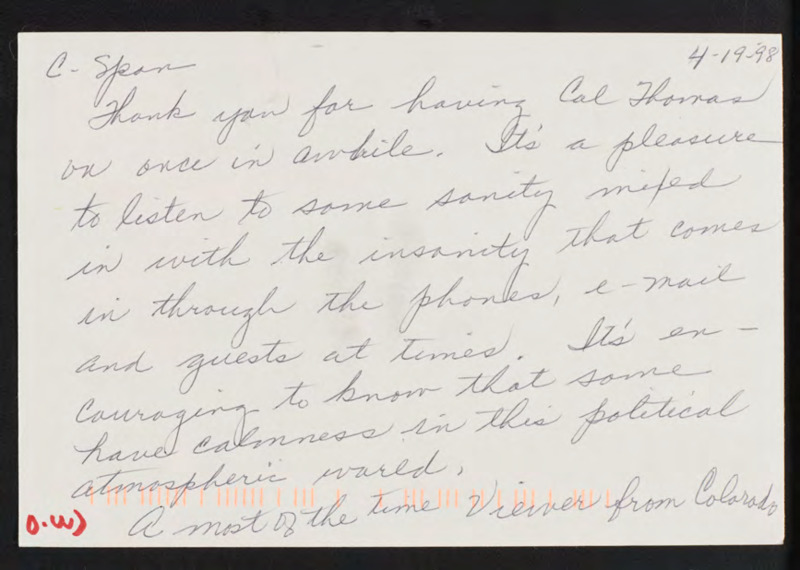 C-Span
4-19-98
Thank you for having Cal Thomas
on once in awhile. It's a pleasure
to listen to some sanity mixed
in with the insanity that comes
in through the phones, e-mail
and guests at times. It's en-
couraging to know that some
have calmness in this political
atmospheric world.
A most of the time Viewer from Colorado
D.W)